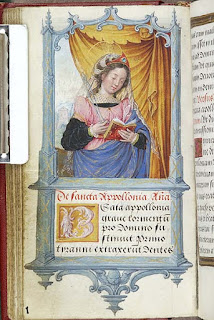 De sancta Appollonia Aña
Beata appollonia
grave tormentũ
pro Domino su
stinuit Primo
tiranni extraxerũt Dentes
1